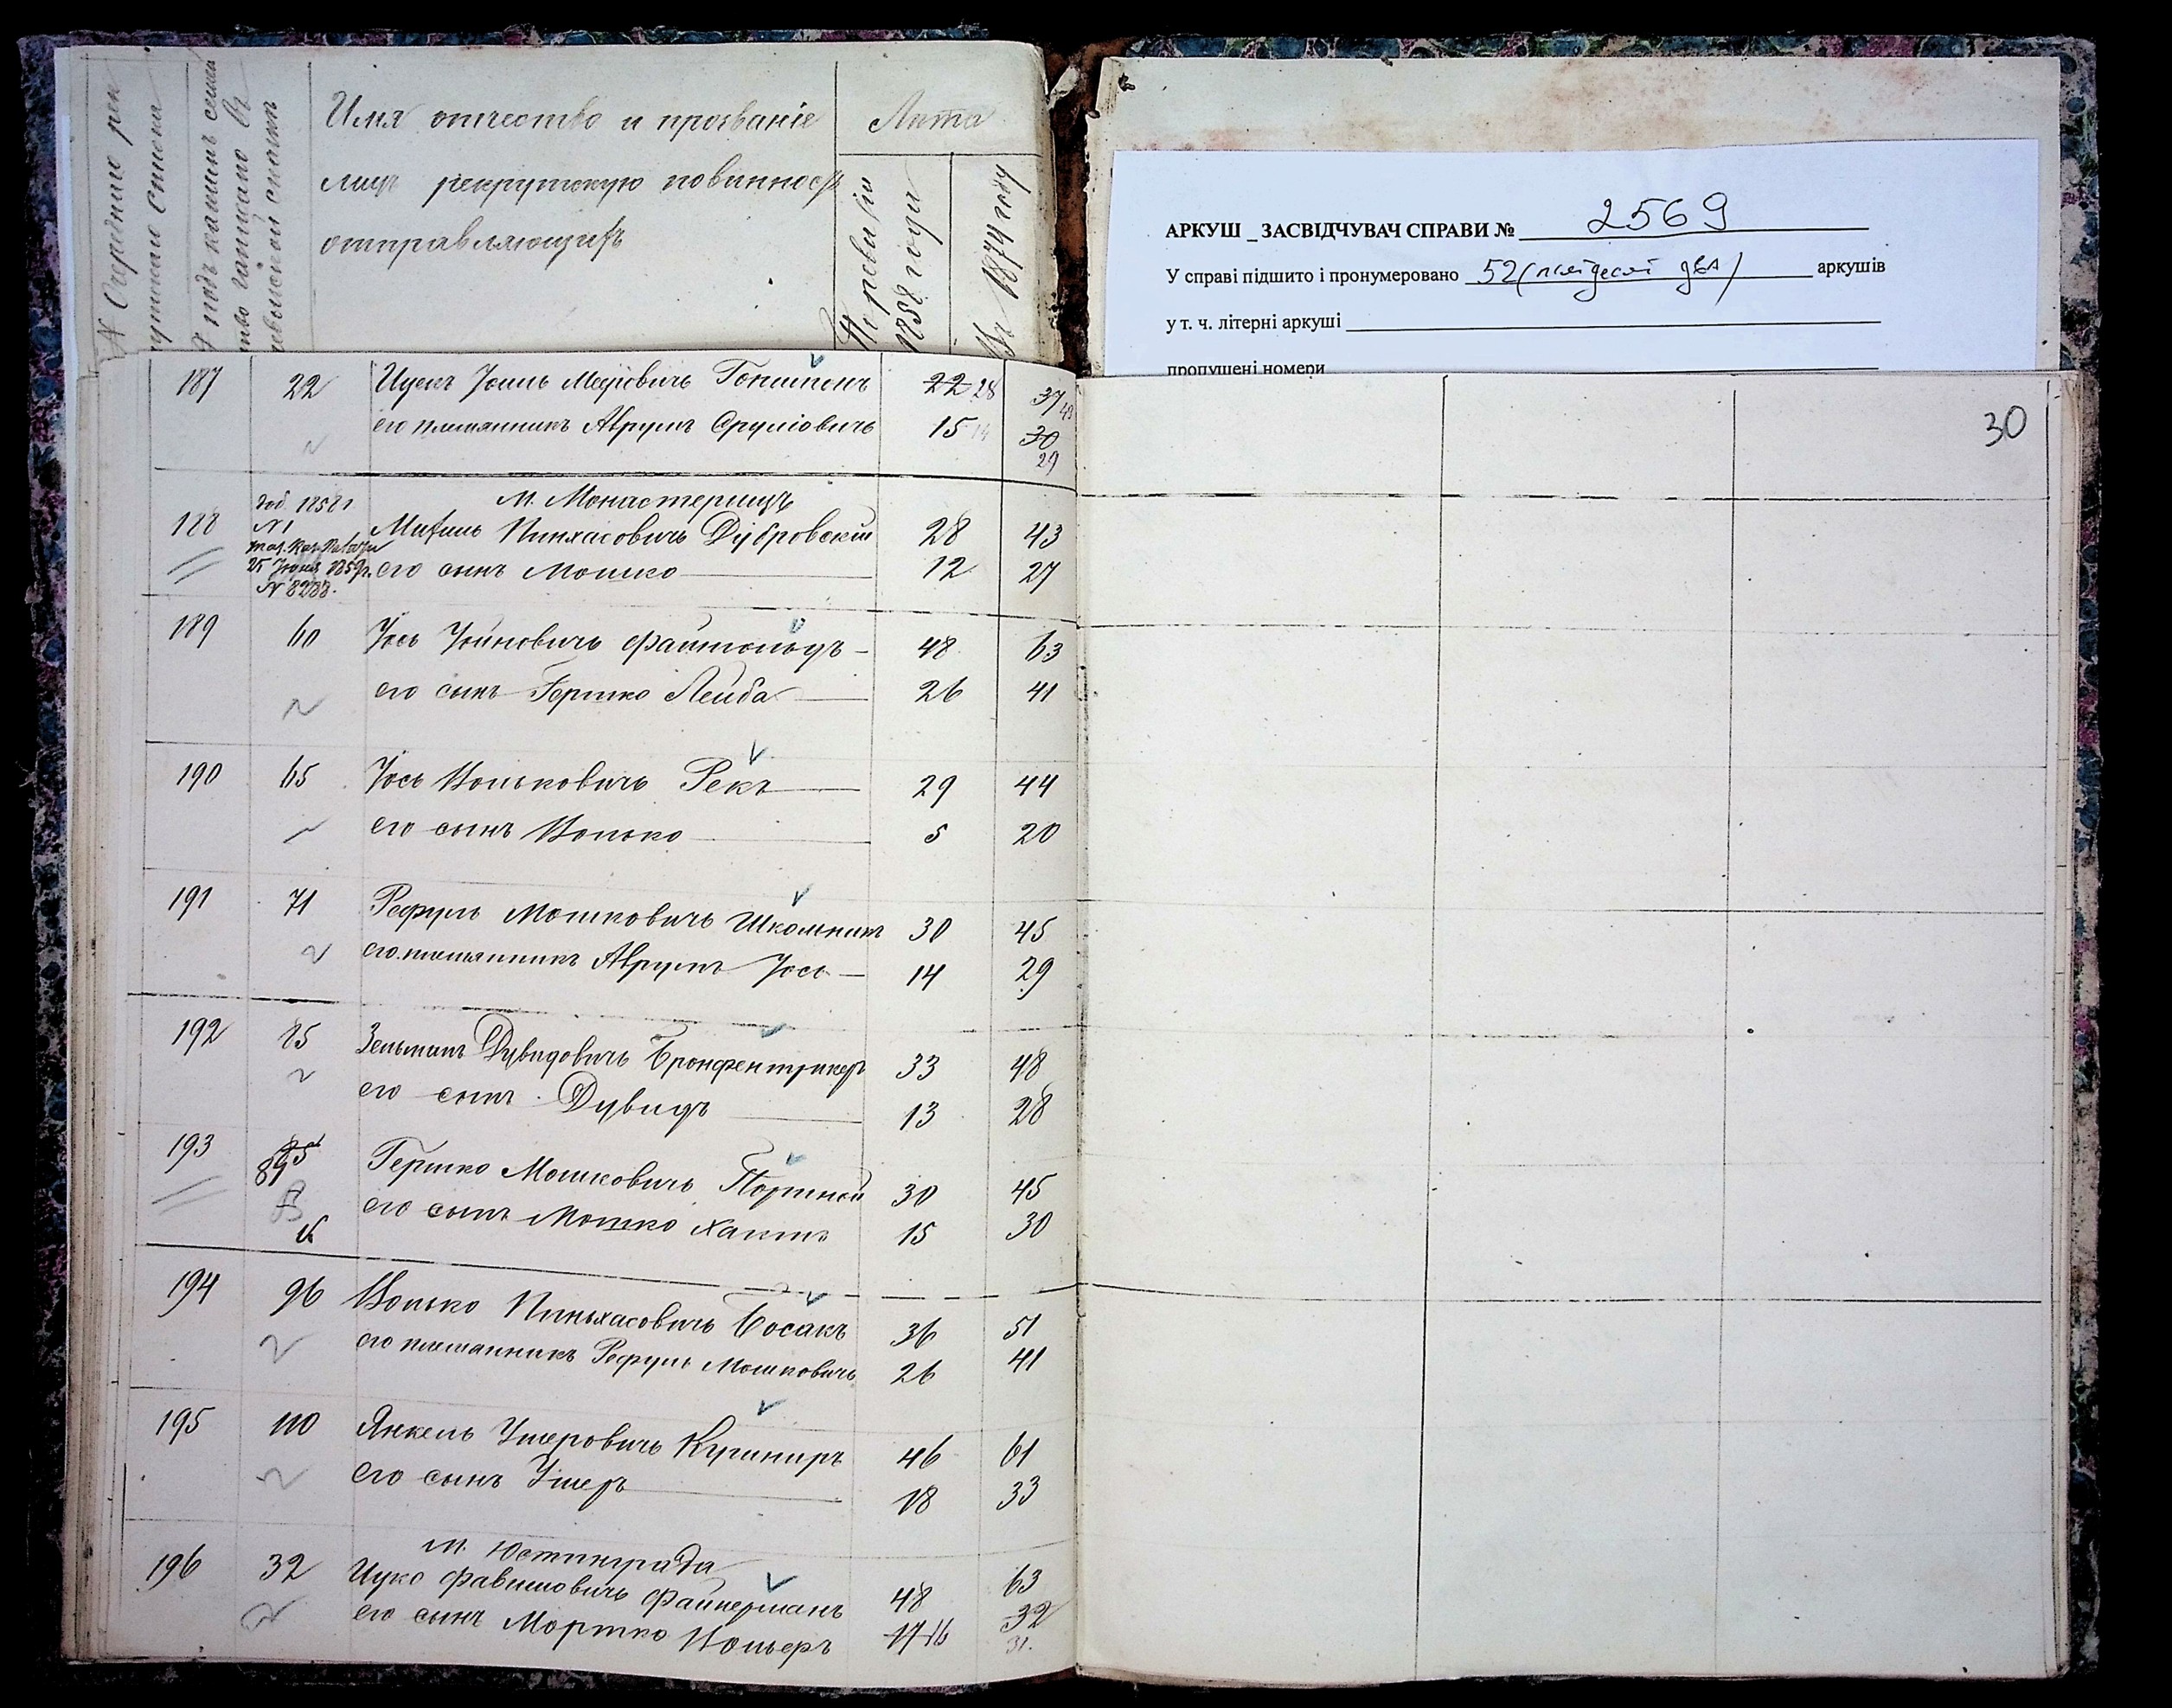 № Очередные рек
рутскаго списка
№ подъ какимъ семей
ство записано въ
ревизской сказкѣ
Имя отчество и прозваніе
лицъ рекрутскую повинность
отправляющихъ
Лѣта
По ревизіи
1858 года
Въ 1874 году
АРКУШ _ ЗАСВІДЧУВАЧ СПРАВИ № 2569
У справі підшито і пронумеровано 52 (пятдесят два) аркушів
у т. ч. літерні аркуші
пропущені номери
30
187 22 Ицекъ Іоиль Меировичъ 22 28 37 43
его племянникъ Аврумъ Сруліовичъ 15 14 30
29
м. Монастерищъ
188 1858 г. № 1 Пинхасовичъ Дубровскій 28 43
25 1859 г. его сынъ Мошко 12 27
189 60 Іось Іойновичъ 48 63
его сынъ Гершко Лейба 26 41
190 65 Іось Вольковичъ Рекъ 29 44
его сынъ Волько 5 20
191 71 Рефулъ Мошковичъ Школьникъ 30 45
его племянникъ Аврумъ Іось 14 29
192 85 Зельманъ Дувидовичъ Бронфентрикеръ 33 48
его сынъ Дувидъ 13 28
193 85 89 Гершко Мошковичъ Портной 30 45
его сынъ Мошко Хаимъ 15 30
194 96 Волько Пиньхасовичъ Босакъ 36 51
его племянникъ Рефулъ Мошковичъ 26 41
195 110 Янкель Ушеровичъ Кушниръ 46 61
его сынъ Ушеръ 18 33
м. Юстинграда
196 32 Ицко Фавишовичъ Файнерманъ 48 63
его сынъ Мортко Вольеръ 17 16 32
31.